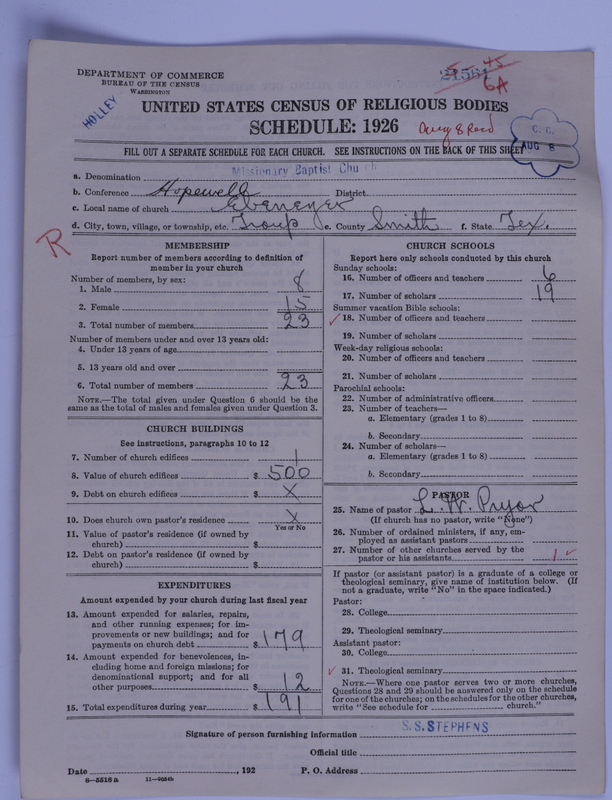 DEPARTMENT OF COMMERCE
BUREAU OF THE CENSUS
WASHINGTON
HOLLEY
21561
45
6A
UNITED STATES CENSUS OF RELIGIOUS BODIES
SCHEDULE: 1926
Aug 8 Recd
C. C.
AUG 8
FILL OUT A SEPARATE SCHEDULE FOR EACH CHURCH. SEE INSTRUCTIONS ON THE BACK OF THIS SHEET
a. Denomination Missionary Baptist Church
b. Conference Hopewell District
c. Local name of church Ebenezer
d. City, town, village, or township, etc. Troup e. County Smith f. State Tex.
R
MEMBERSHIP
Report number of members according to definition of
member in your church
Number of members, by sex:
1. Male 8
2. Female 15
3. Total number of members 23
Number of members under and over 13 years old:
4. Under 13 years of age
5. 13 years old and over
6. Total number of members 23
NOTE.—The total given under Question 6 should be the
same as the total of males and females given under Question 3.
CHURCH BUILDINGS
See instructions, paragraphs 10 to 12
7. Number of church edifices 1
8. Value of church edifices $ 500
9. Debt on church edifices $ X
10. Does church own pastor's residence X
Yes or No
11. Value of pastor's residence (if owned by
church) $
12. Debt on pastor's residence (if owned by
church) $
EXPENDITURES
Amount expended by your church during last fiscal year
13. Amount expended for salaries, repairs,
and other running expenses; for im-
provements or new buildings; and for
payments on church debt $ 179
14. Amount expended for benevolences, in-
cluding home and foreign missions; for
denominational support; and for all
other purposes $ 12
15. Total expenditures during year $ 191
CHURCH SCHOOLS
Report here only schools conducted by this church
Sunday schools:
16. Number of officers and teachers 6
17. Number of scholars 19
Summer vacation Bible schools:
✓ 18. Number of officers and teachers
19. Number of scholars
Week-day religious schools:
20. Number of officers and teachers
21. Number of scholars
Parochial schools:
22. Number of administrative officers
23. Number of teachers—
a. Elementary (grades 1 to 8)
b. Secondary
24. Number of scholars—
a. Elementary (grades 1 to 8)
b. Secondary
PASTOR
25. Name of pastor L. W. Pryor
(If church has no pastor, write "None")
26. Number of ordained ministers, if any, em-
ployed as assistant pastors
27. Number of other churches served by the
pastor or his assistants 1 ✓
If pastor (or assistant pastor) is a graduate of a college or
theological seminary, give name of institution below. (If
not a graduate, write "No" in the space indicated.)
Pastor:
28. College
29. Theological seminary
Assistant pastor:
30. College
✓ 31. Theological seminary
NOTE.—Where one pastor serves two or more churches,
Questions 28 and 29 should be answered only on the schedule
for one of the churches; on the schedules for the other churches,
write "See schedule for church."
Signature of person furnishing information S. S. STEPHENS
Official title
Date , 192 P. O. Address
8-5516 a